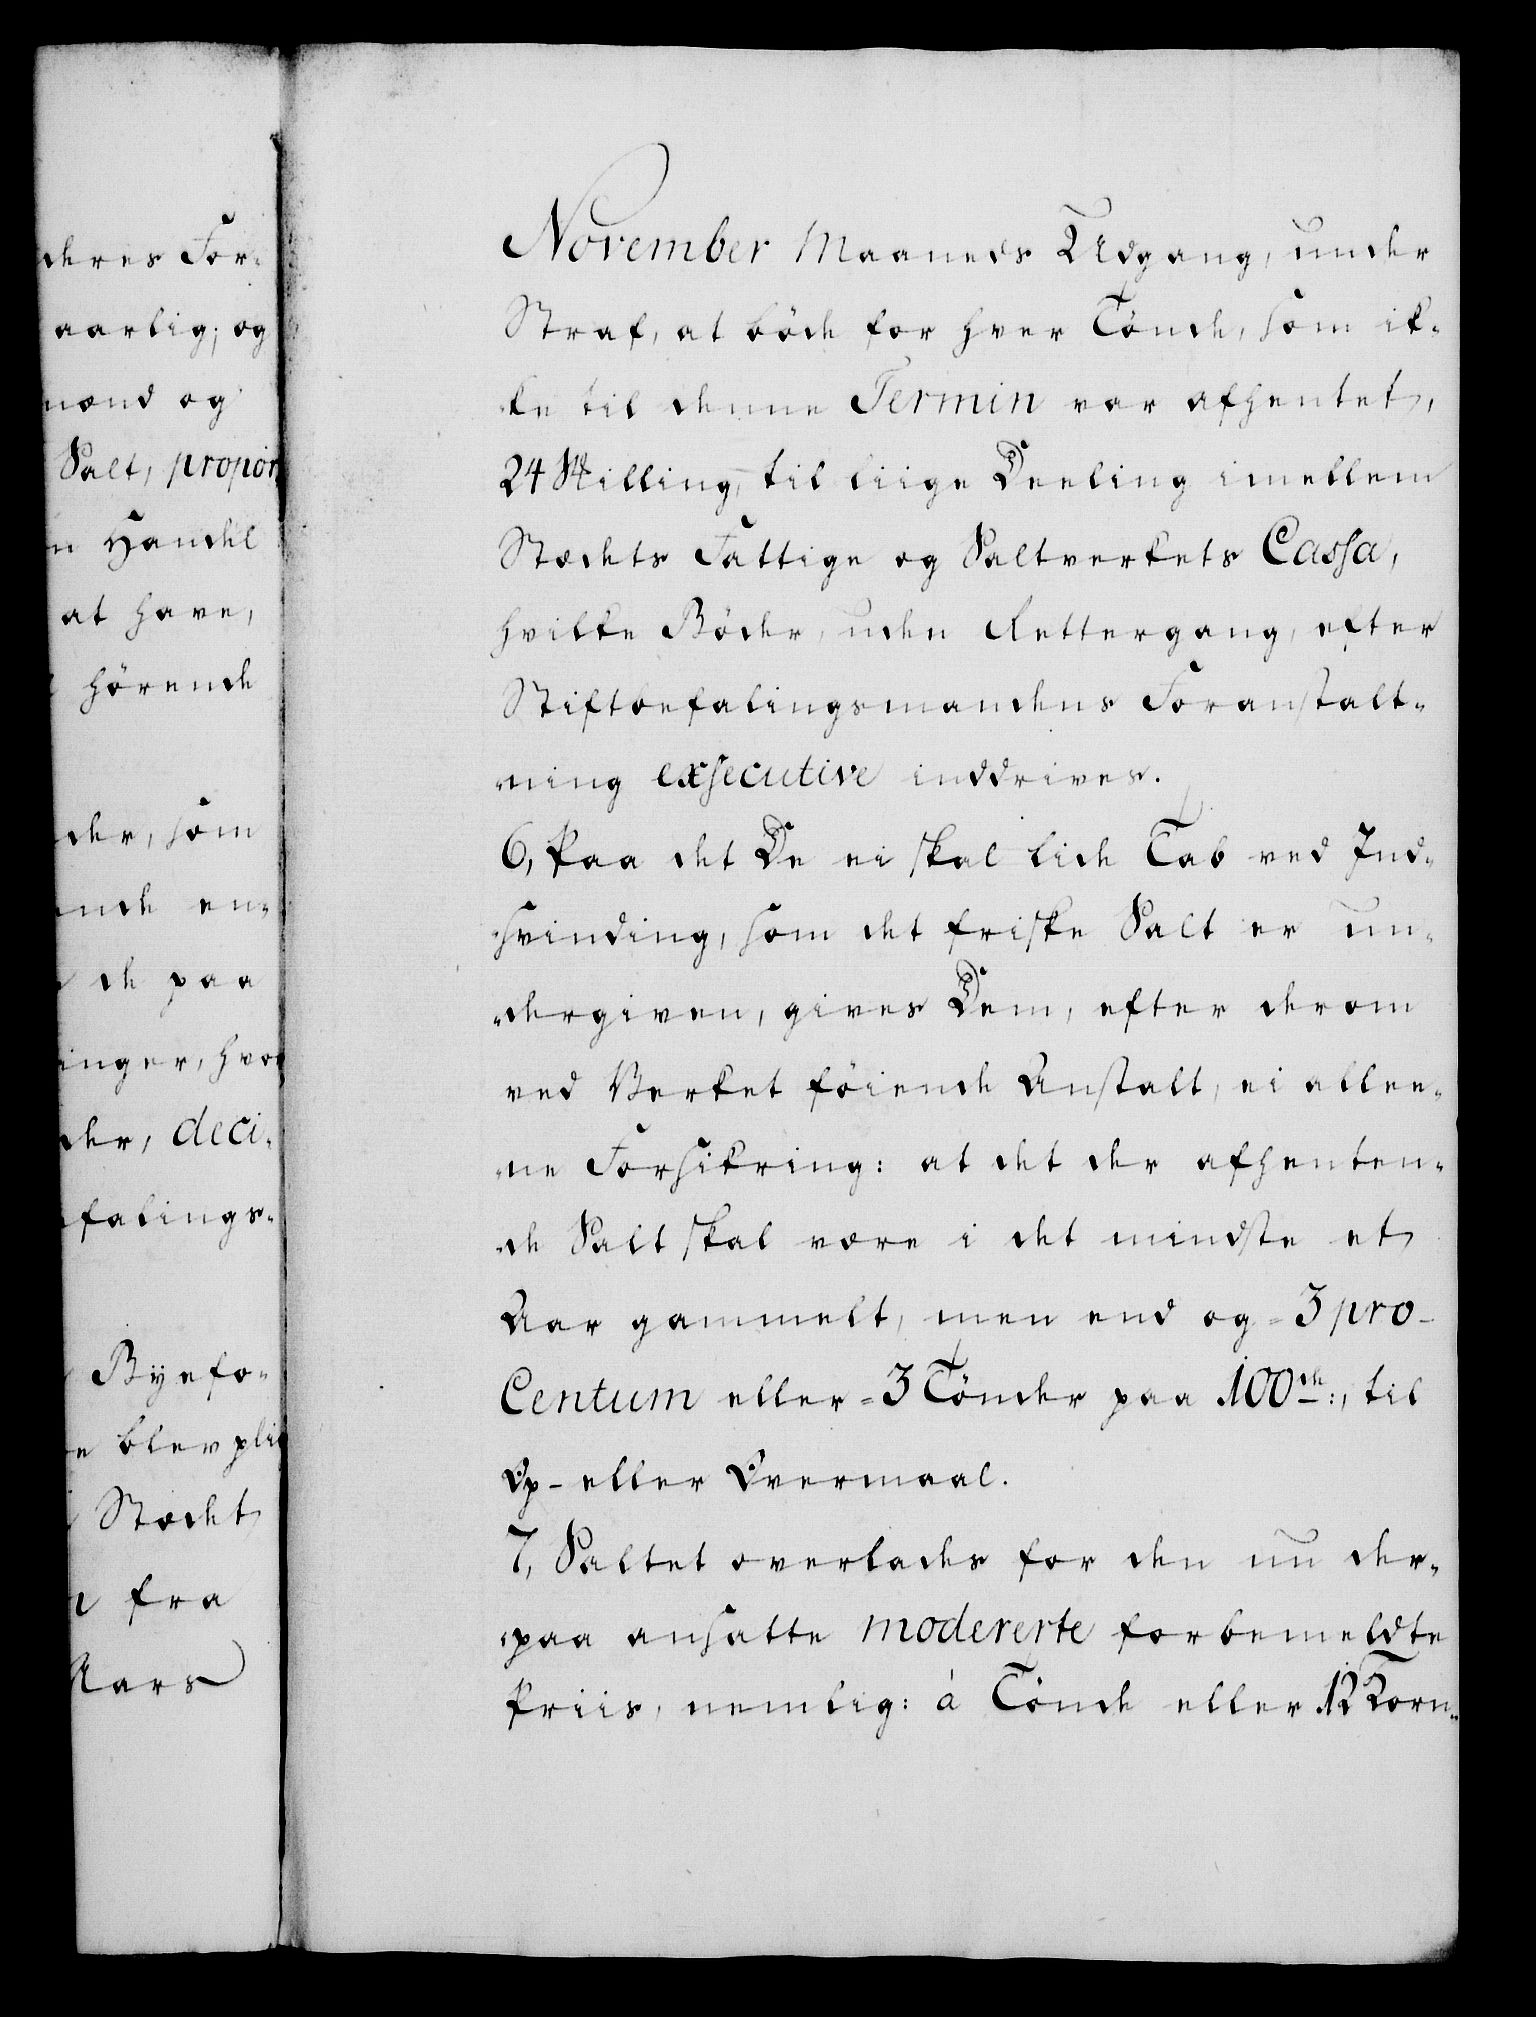 deres For-
aarlig; og
mænd og
Salt, propor
n Handel
at have,
hörende
der, som
ende en-
de paa
inger, hvor
der, deci-
falings-
Byefo-
e blev pli
Stædet
fra
Aars
November Maaneds Udgang, under
Straf, at böde for hver Tönde, som ik-
ke til denne Termin var afhentet,
24 Skilling, til liige Deeling imellem
Stædets Fattige og Saltverkets Cassa,
hvilke Böder, uden Rettergang, efter
Stiftbefalingsmandens Foranstalt-
ning exsecutive inddrives.
6, Paa det De ei skal lide Tab ved Ind-
svinding, som det friske Salt er un-
dergiven, gives Dem, efter derom
ved Verket föiende Anstalt, ei allee-
ne Forsikring: at det der afhenten-
de Salt skal være i det mindste et
Aar gammelt, men end og = 3 pro-
Centum eller = 3 Tönder paa 100de:, til
Op- eller Overmaal.
7, Saltet overlades for den nu der-
paa ansatte modererte forbemeldte
Priis, nemlig: à Tönde eller 12 Korn-